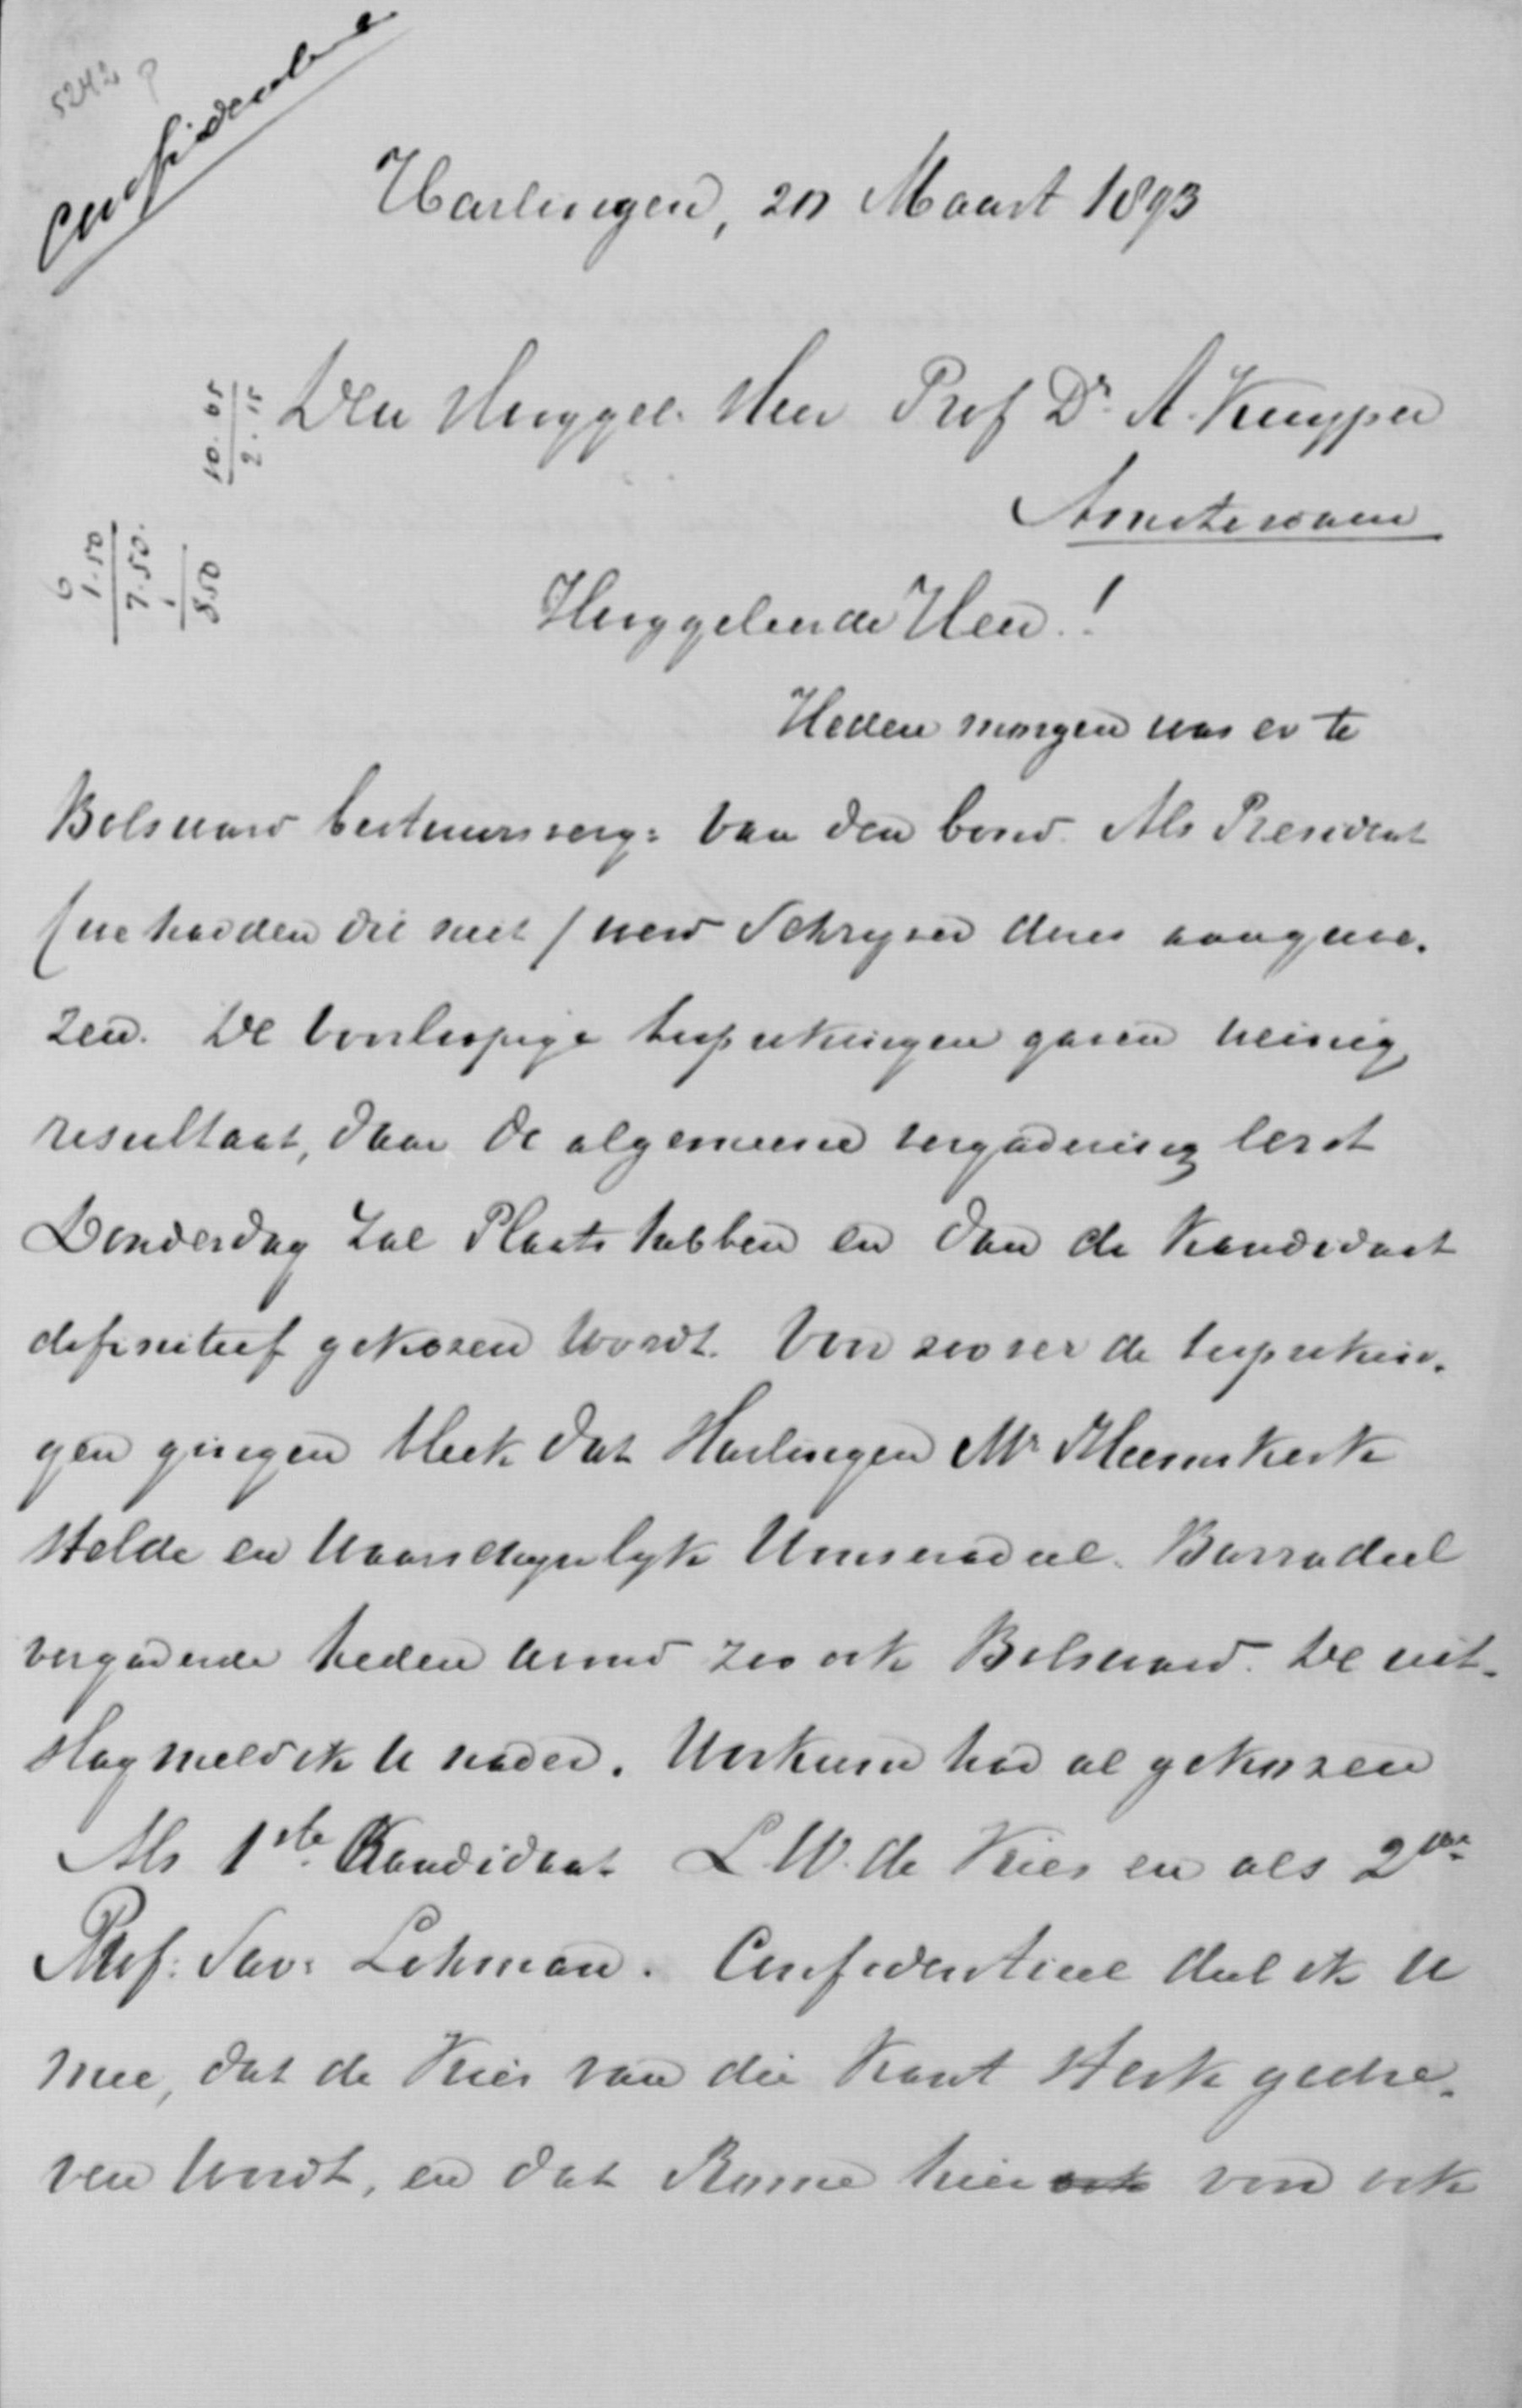 5242
Confidentieel
Harlingen, 20 Maart 1893
10.65
2.15
Den Hooggel. Heer Prof Dr. A. Kuyper
Amsterdam
6
1.50
7.50.
1
8.50
Hooggeleerde Heer!
Heden morgen was er te
Bolsward bestuursverg: van den bond. Als President
(we hadden die niet) werd Schrijver dezes aangewe-
zen. De voorloopige besprekingen gaven weinig
resultaat, daar de algemeene vergadering eerst
Donderdag zal Plaats hebben en dan de Kandidaat
definitief gekozen wordt. Voor zoover de besprekin-
gen gingen bleek dat Harlingen Mr Heemskerk
stelde en waarschynlyk Wonseradeel. Barradeel
vergaderde heden avond zoo ook Bolsward. De uit-
slag meld ik U nader. Workum had al gekozen
Als 1ste Kandidaat L. W. de Vries en als 2de
Prof: Sav: Lohman. Confidentieel deel ik U
mee, dat de Vries van die Kant sterk gedre-
ven wordt, en dat Rome hier ook voor ook